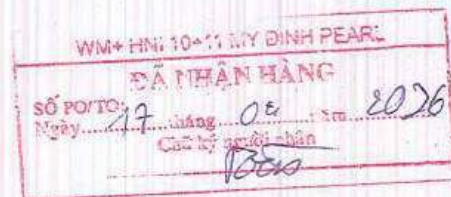 WM+ HNI 10+11 MY ĐINH PEARL
ĐÃ NHẬN HÀNG
SỐ PO/TO:
Ngày 17 tháng 08 năm 2026
Chữ ký người nhận